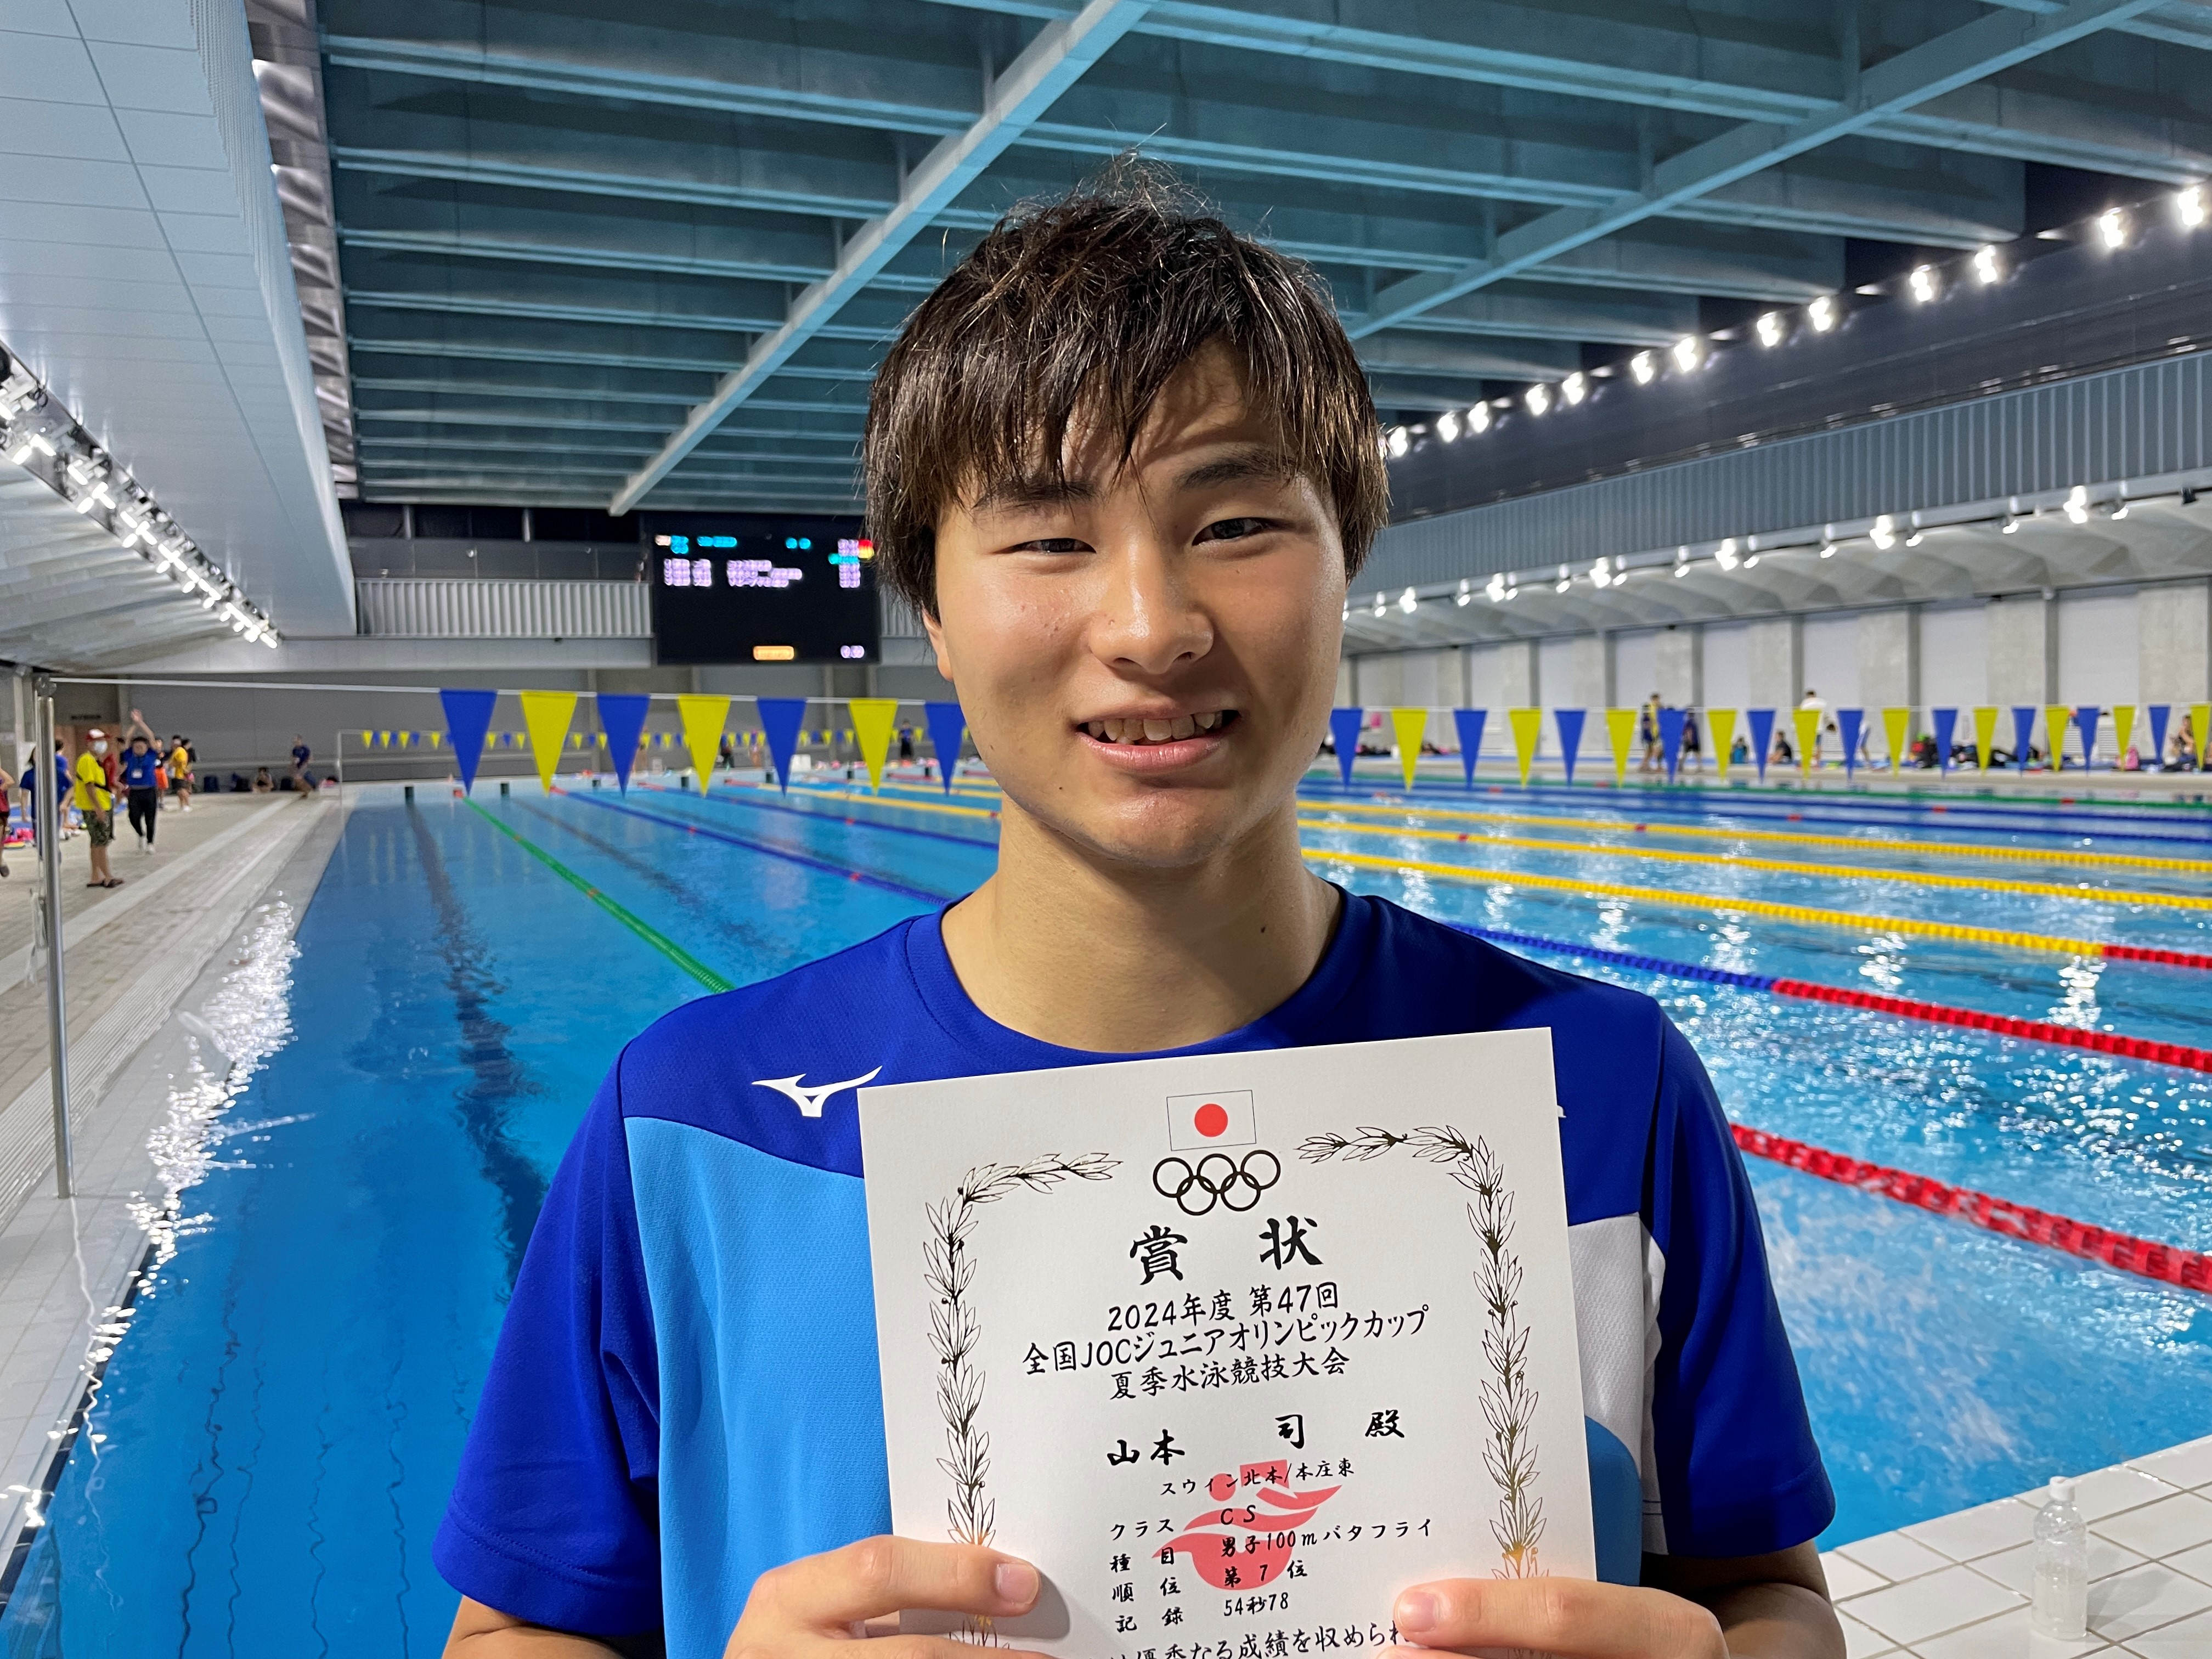 賞 状
2024年度 第47回
全国JOCジュニアオリンピックカップ
夏季水泳競技大会
山本 司 殿
スウィン北本/本庄東
クラス CS
種目 男子100mバタフライ
順位 第7位
記録 54秒78
優秀なる成績を収められ